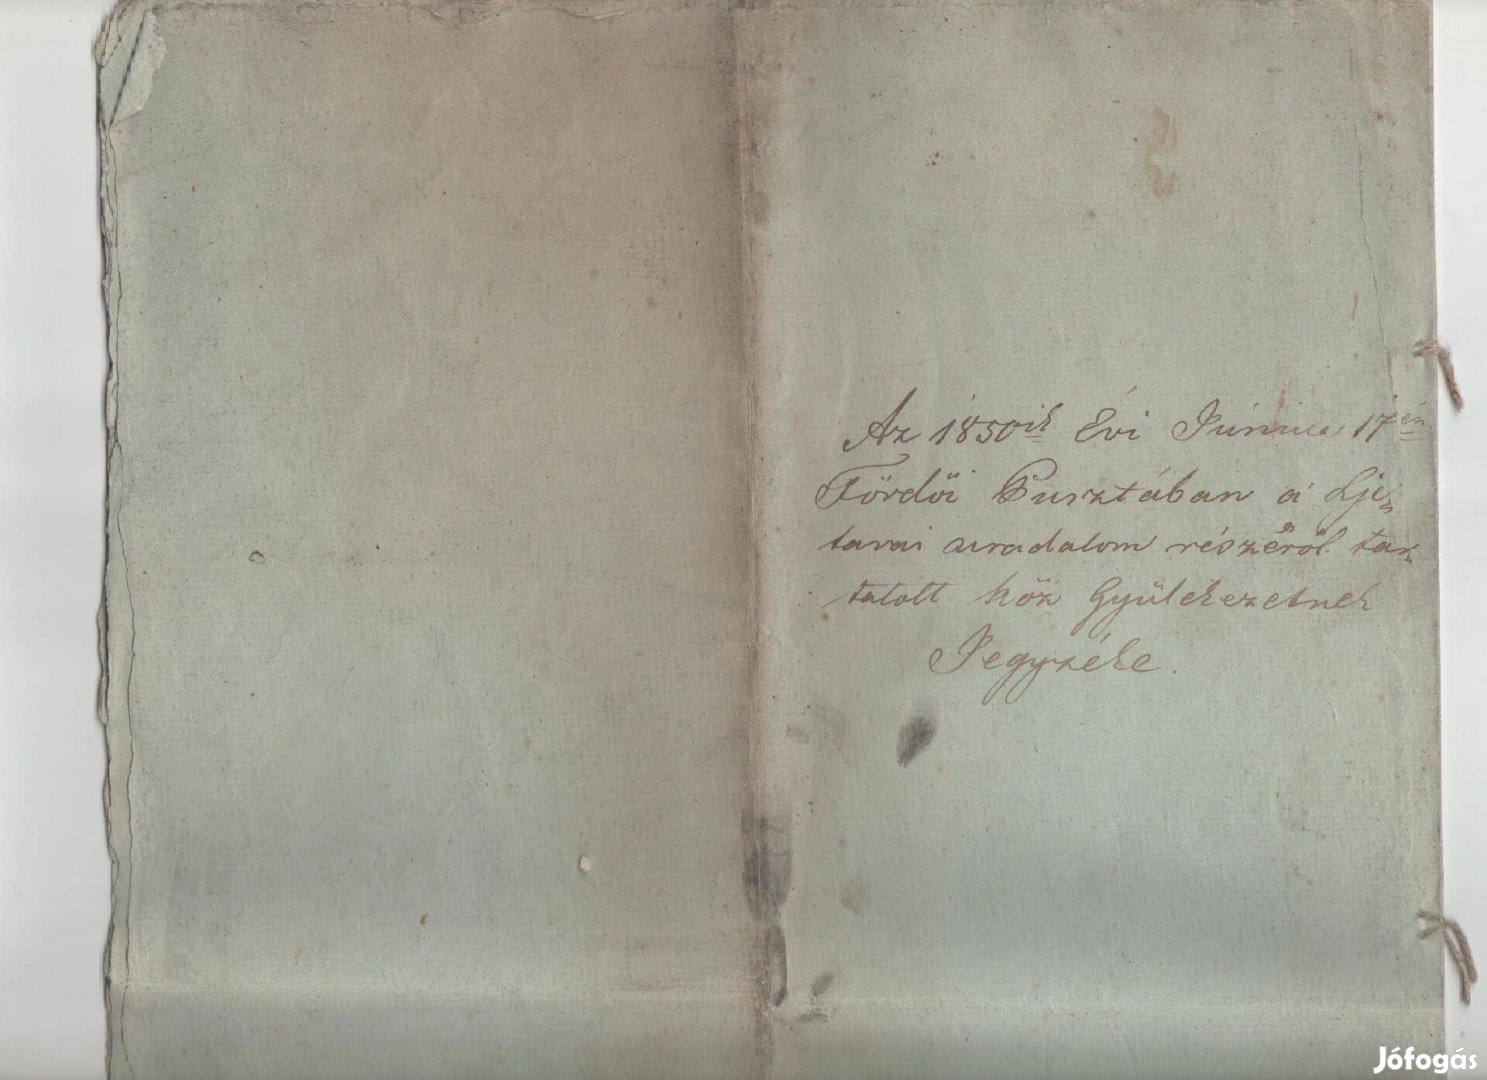 Az 1850ik Évi Június 17én
Fördői Pusztában a' Lje=
tavai uradalom részéről tar=
tatott köz Gyülekezetnek
Jegyzéke.
Jófogás